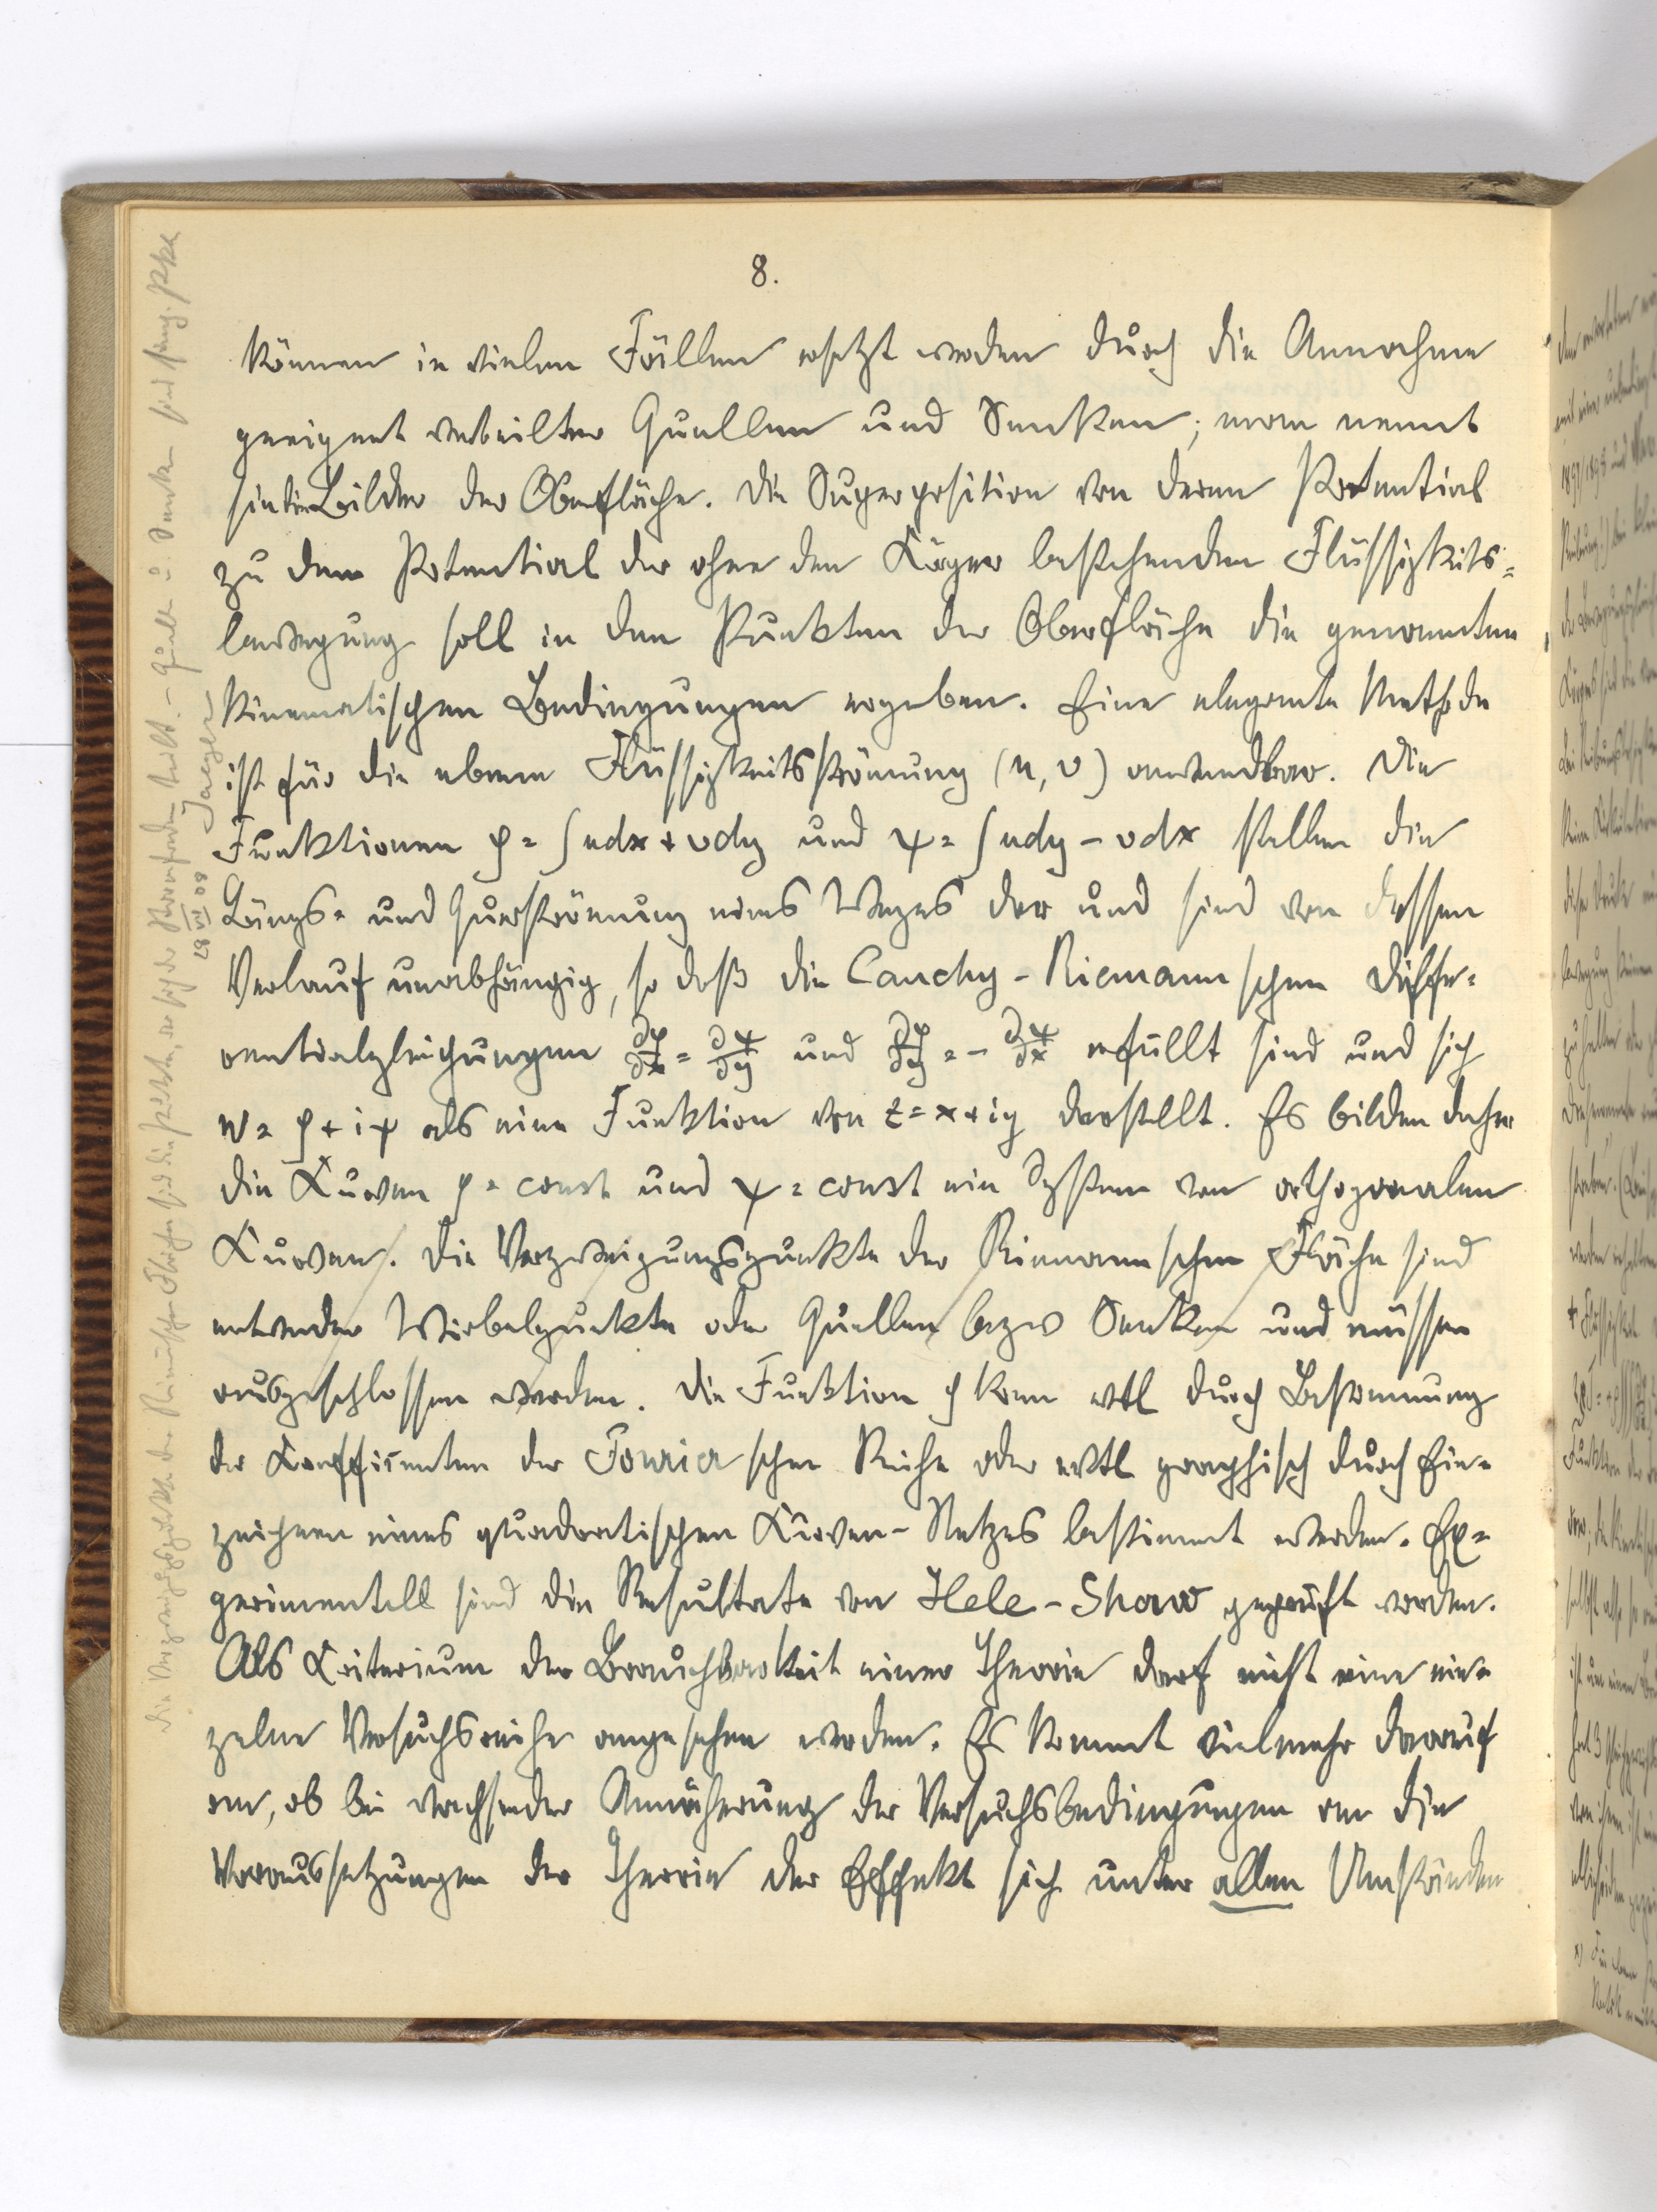 8.
können in vielen Fällen ersetzt werden durch die Annahme
geeignet verteilter Quellen und Senken; man nennt
sie die Bilder der Oberfläche. Die Superposition von deren Potential
zu dem Potential der ohne den Körper bestehenden Flüssigkeits=
bewegung soll in den Punkten der Oberfläche die genannten
kinematischen Bedingungen ergeben. Eine elegante Methode
ist für die ebene Flüssigkeitsströmung (u, v) anwendbar. Die
Funktionen φ = ∫udx + vdy und ψ = ∫udy - vdx stellen die
Längs= und Querströmung eines Weges dar und sind von dessen
Verlauf unabhängig, so daß die Cauchy-Riemannschen Diffe=
rentialgleichungen ∂φ/∂x = ∂ψ/∂y und ∂φ/∂y = - ∂ψ/∂x erfüllt sind und sich
w = φ + iψ als eine Funktion von z = x + iy darstellt. Es bilden daher
die Kurven φ = const und ψ = const ein System von orthogonalen
Kurven. Die Verzweigungspunkte der Riemannschen Fläche sind
entweder Wirbelpunkte oder Quellen bezw Senken und müssen
ausgeschlossen werden. Die Funktion φ kann evtl durch Bestimmung
der Koeffizienten der Fourierschen Reihe oder evtl graphisch durch Ein=
zeichnen eines quadratischen Kurven-Netzes bestimmt werden. Ex=
perimentell sind die Resultate von Hele-Shaw geprüft worden.
Als Kriterium der Brauchbarkeit einer Theorie darf nicht eine ein=
zelne Versuchsreihe angesehen werden. Es kommt vielmehr darauf
an, ob bei wachsender Annäherung der Versuchsbedingungen an die
Voraussetzungen der Theorie der Effekt sich unter allen Umständen
Die Verzweigungspunkte der Riemannschen Fläche sind die Punkte, wo sich der Stromfaden teilt. - Quellen u. Senken sind sing. Pkte
28 VII 08 Jaeger